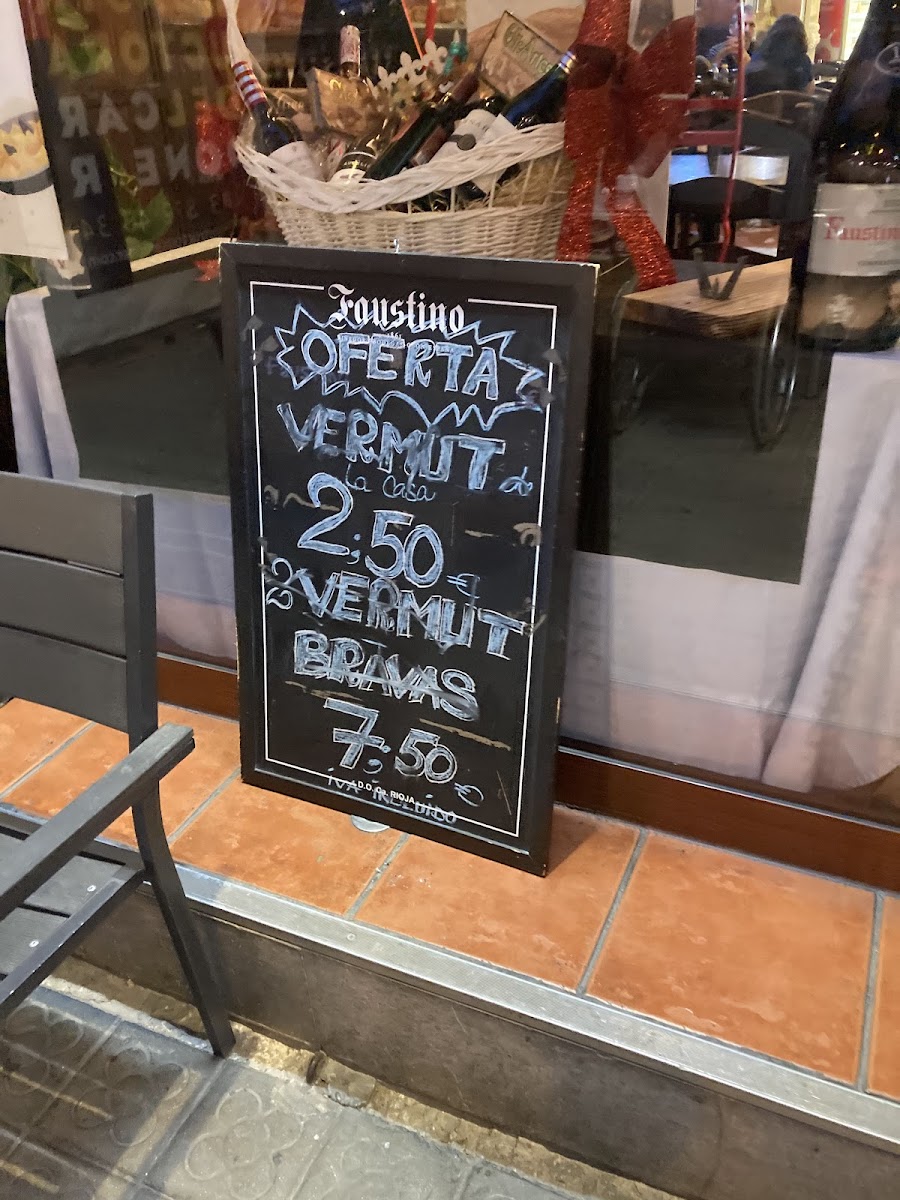 Faustino
OFERTA
VERMUT de
la casa
2,50 €
2 VERMUT
BRAVAS
7,50 €
D.O.Ca. RIOJA
IVA INCLUIDO
Faustino